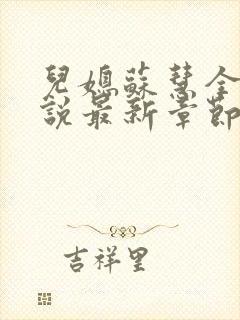 兒媳蘇慧全
説最新章節
吉祥里